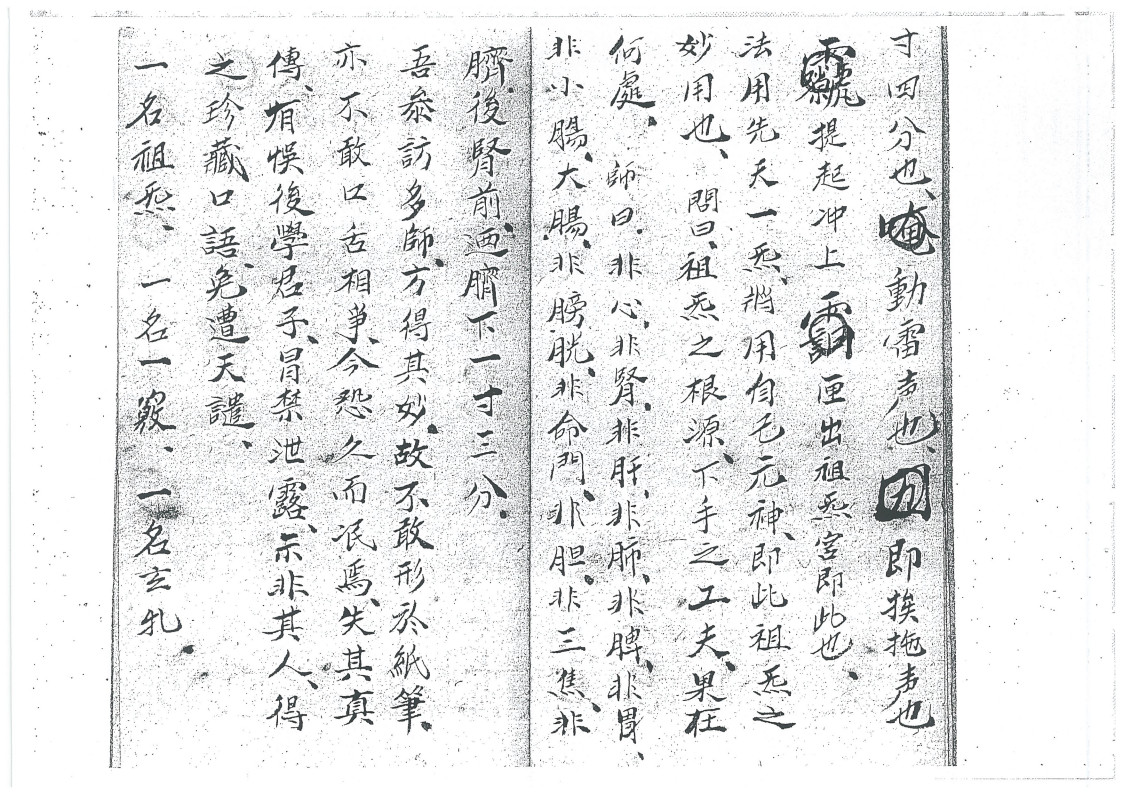 寸四分也、唵動雷声也、囗即挨拖声也
提起冲上 匣出祖炁宮即此也、
法用先天一炁、將用自己元神、即此祖炁之
妙用也、問曰、祖炁之根源、下手之工夫、果在
何處、師曰、非心、非腎、非肝、非肺、非脾、非胃、
非小腸、大腸、非膀胱、非命門、非胆、非三焦、非
臍、後腎前、迺臍下一寸三分、
吾叅訪多師、方得其妙、故不敢形於紙筆、
亦不敢口舌相爭、今恐久而泯焉、失其真
傳、有悞後學君子、冒禁泄露、示非其人、得
之珍藏口語、免遭天譴、
一名祖炁、一名一竅、一名玄牝